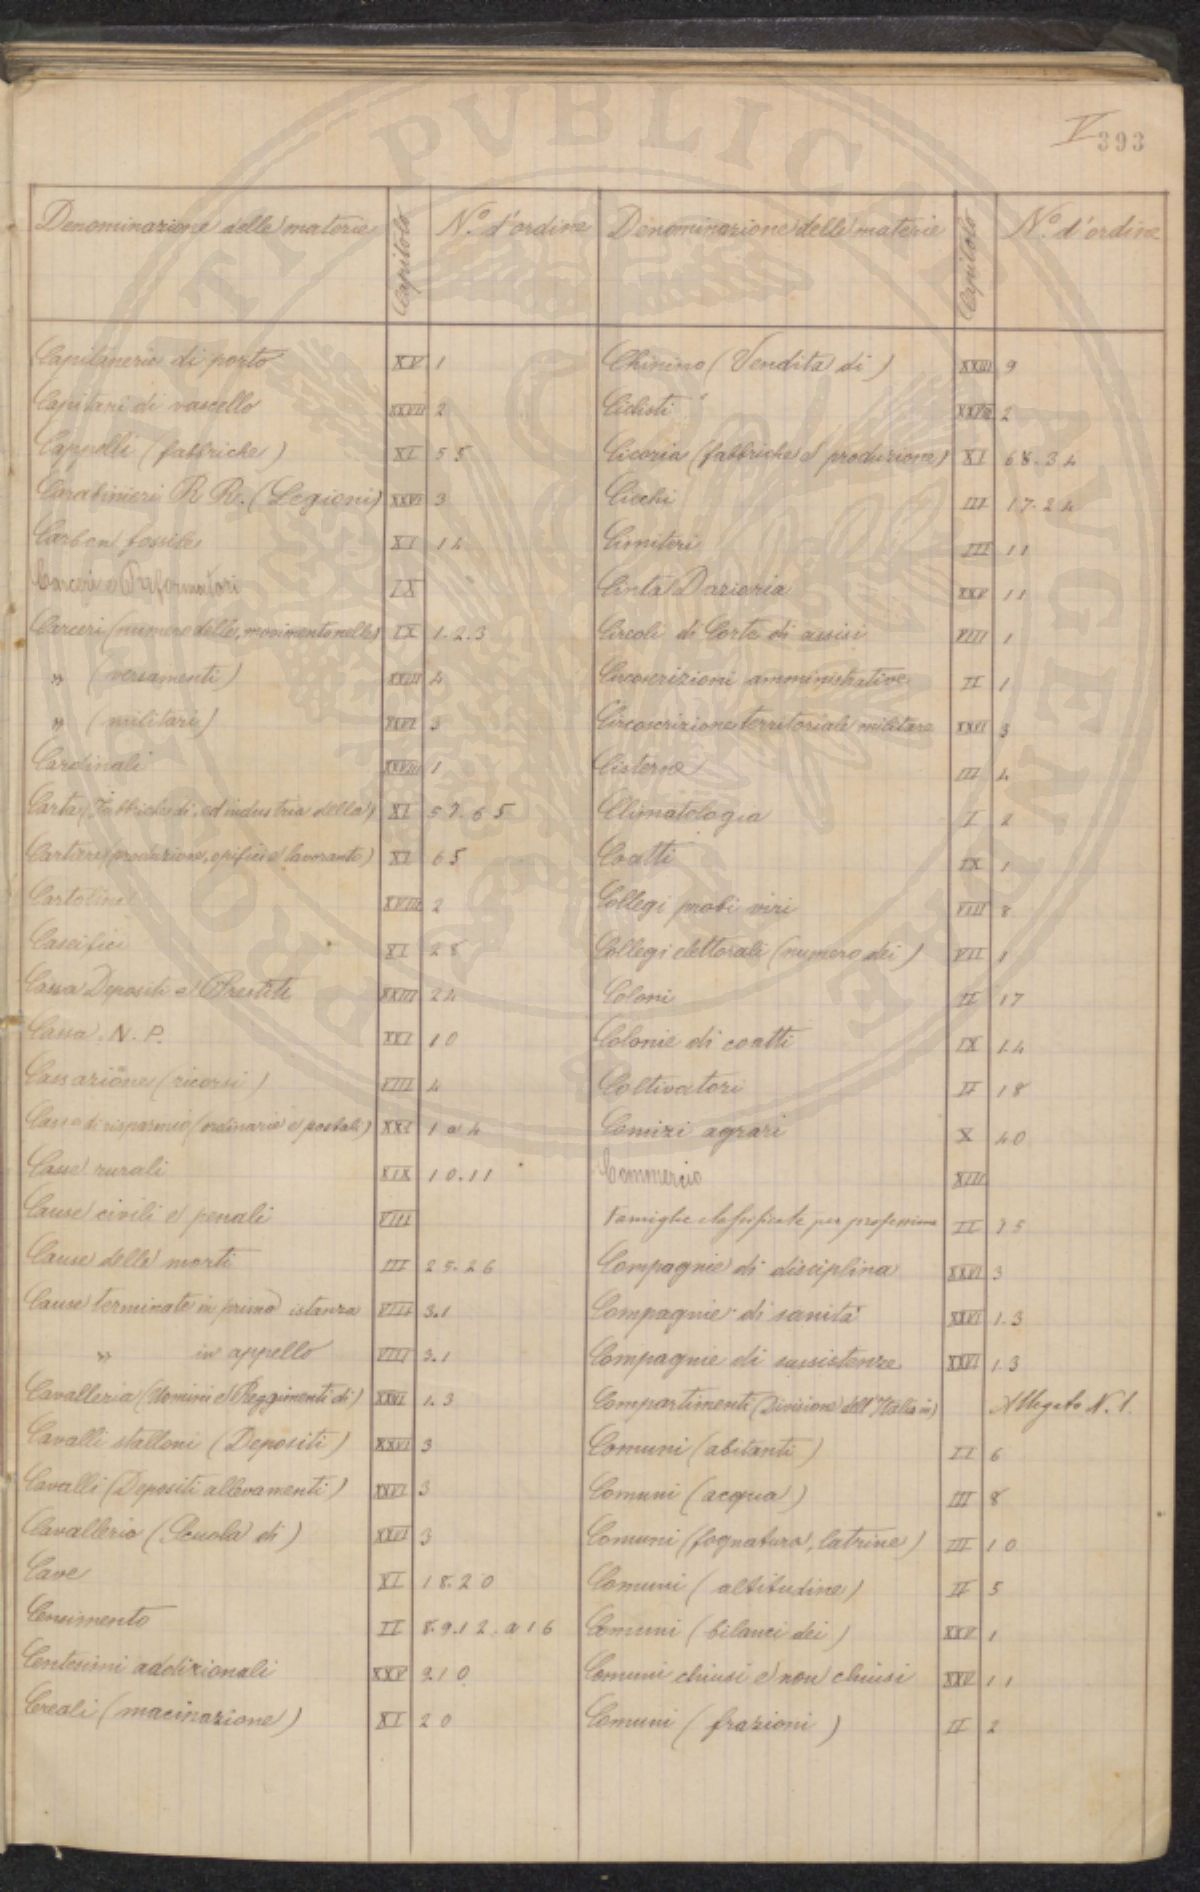 V 393
Denominazione delle materie Capitolo N.º d'ordine
Capitanerie di porto XV 1
Capitani di vascello XXVII 2
Cappelli (fabbriche) XI 55
Carabinieri R R. (Legioni) XXVI 3
Carbon fossile XI 14
Carceri e Riformatori IX
Carceri (numero delle, movimento nelle) IX 1.2.3
" (versamenti) XXIII 4
" (militari) XXVI 3
Cardinali XXVIII 1
Carta (Fabbriche di, ed industria della) XI 57.65
Cartiere (produzione, opifici e lavoranti) XI 65
Cartoline XVIII 2
Caseifici XI 28
Cassa Depositi e Prestiti XXIII 24
Cassa. N. P. XXI 10
Cassazione (ricorsi) VIII 4
Casse di risparmio (ordinarie e postali) XXI 1 a 4
Casse rurali XIX 10.11
Cause civili e penali VIII
Cause delle morti III 25.26
Cause terminate in prima istanza VIII 3.1
" in appello VIII 3.1
Cavalleria (Uomini e Reggimenti di) XXVI 1.3
Cavalli stalloni (Depositi) XXVI 3
Cavalli (Depositi allevamenti) XXVI 3
Cavalleria (Scuola di) XXVI 3
Cave XI 18.20
Censimento II 8.9.12. a 16
Centesimi addizionali XXV 2.10
Cereali (macinazione) XI 20
Denominazione delle materie Capitolo N.º d'ordine
Chinino (Vendita di) XXIII 9
Ciclisti XXVII 2
Cicoria (fabbriche e produzione) XI 68.34
Ciechi III 17.24
Cimiteri III 11
Cinta Daziaria XXV 11
Circoli di Corte di assisi VIII 1
Circoscrizioni amministrative II 1
Circoscrizione territoriale militare XXVI 3
Cisterne III 4
Climatologia I 2
Coatti IX 1
Collegi probi viri VIII 8
Collegi elettorali (numero dei) VII 1
Coloni II 17
Colonie di coatti IX 14
Coltivatori II 18
Comizi agrari X 40
Commercio XIII
Famiglie classificate per professione II 35
Compagnie di disciplina XXVI 3
Compagnie di sanità XXVI 1.3
Compagnie di sussistenze XXVI 1.3
Compartimenti (Divisione dell'Italia in) Allegato N. 1.
Comuni (abitanti) II 6
Comuni (acqua) III 8
Comuni (fognatura, latrine) III 10
Comuni (altitudine) II 5
Comuni (bilanci dei) XXV 1
Comuni chiusi e non chiusi XXV 11
Comuni (frazioni) II 2